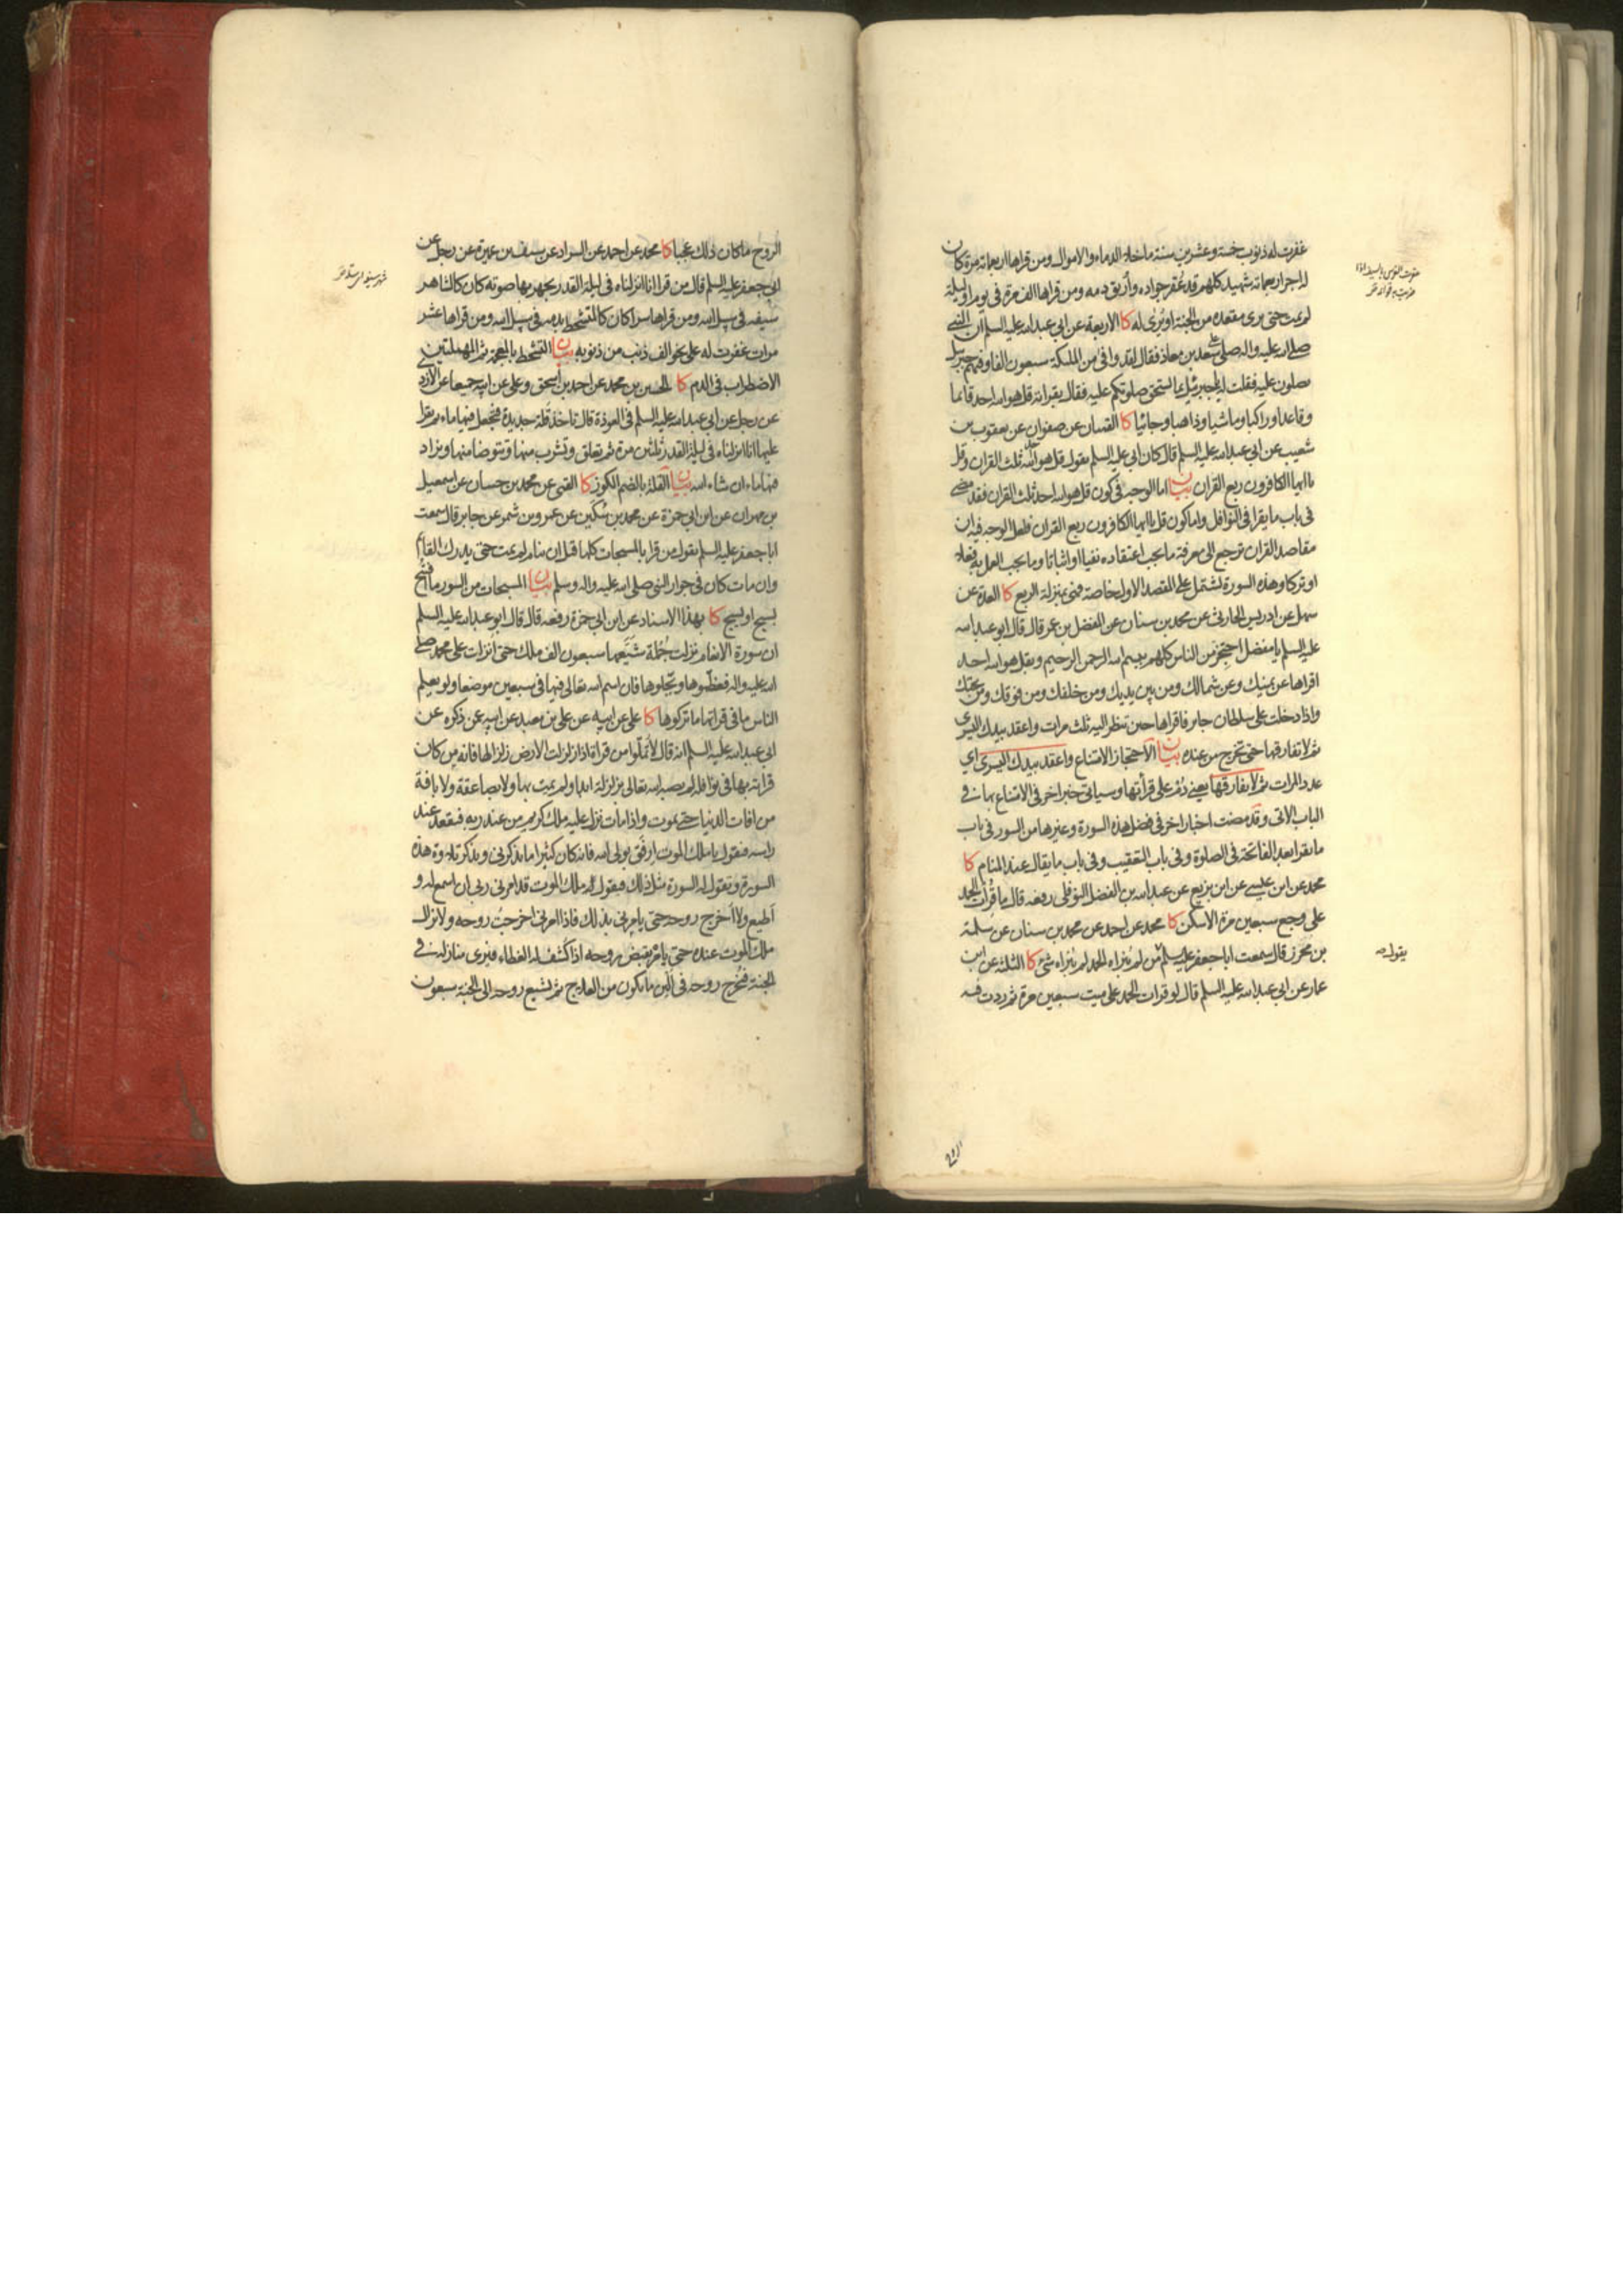 غفرت له ذنوب خمسة وعشرين سنة ما خلا الدماء والاموال ومن قراها اربعمائة مرة كان
له اجر اربعمائة شهيد كلهم قد عُقر جواده وأُريق دمه ومن قراها الف مرة في يوم او ليلة
لم يمت حتى يرى مقعده من الجنة او يُرى له كا الاربعة عن ابي عبد الله عليه السلم ان النبي
صلى الله عليه واله صلى على سعد بن معاذ فقال لقد وافى من الملئكة سبعون الفا وفيهم جبرئيل
يصلون عليه فقلت له يا جبرئيل بما يستحق صلوتكم عليه فقال بقراءته قل هو الله احد قائما
وقاعدا وراكبا وماشيا وذاهبا وجائيا كا القميان عن صفوان عن يعقوب بن
شعيب عن ابي عبد الله عليه السلم قال كان ابي عليه السلم يقول قل هو الله احد ثلث القران وقل
يا ايها الكافرون ربع القران بيان اما الوجه في كون قل هو الله احد ثلث القران فقد مضى
في باب ما يقرا في النوافل واما كون قل يا ايها الكافرون ربع القران فلعل الوجه فيه ان
مقاصد القران ترجع الى معرفة ما يجب اعتقاده نفيا او اثباتا وما يجب العمل به فعلا
او تركا وهذه السورة تشتمل على المقصد الاول خاصة فهي بمنزلة الربع كا العدة عن
سهل عن ادريس الحارثي عن محمد بن سنان عن المفضل بن عمر قال قال ابو عبد الله
عليه السلم يا مفضل احتجز من الناس كلهم ببسم الله الرحمن الرحيم وبقل هو الله احد
اقراها عن يمينك وعن شمالك ومن بين يديك ومن خلفك ومن فوقك ومن تحتك
واذا دخلت على سلطان جابر فاقراها حين تنظر اليه ثلث مرات واعقد بيدك اليسرى
ثم لا تفارقها حتى تخرج من عنده بيان الاحتجاز الامتناع واعقد بيدك اليسرى اي
عدد المرات ثم لا تفارقها يعني دُم على قرأتها وسياتي خبر اخر في الامتناع بها في
الباب الاتي وقد مضت اخبار اخر في فضل هذه السورة وغيرها من السور في باب
ما يقرا بعد الفاتحة في الصلوة وفي باب التعقيب وفي باب ما يقال عند المنام كا
محمد عن ابن عيسى عن ابن بزيع عن عبد الله بن الفضل النوفلي رفعه قال ما قُرأت الحمد
على وجع سبعين مرة الا سكن كا محمد عن احمد عن محمد بن سنان عن سلمة
بن محرز قال سمعت ابا جعفر عليه السلم من لم يُبراه الحمد لم يُبراه شئ كا الثلثة عن ابن
عمار عن ابي عبد الله عليه السلم قال لو قرات الحمد على ميت سبعين مرة ثم ردت فيه
يقول صه
الروح ما كان ذلك عجبا كا محمد عن احمد عن السراد عن سيف بن عميرة عن رجل عن
ابي جعفر عليه السلم قال من قرا انا انزلناه في ليلة القدر يجهر بها صوته كان كالشاهر
سيفه في سبيل الله ومن قراها سرا كان كالمتشحط بدمه في سبيل الله ومن قراها عشر
مرات غفرت له على نحو الف ذنب من ذنوبه بيان التشحط بالمعجمة ثم المهملتين
الاضطراب في الدم كا الحسين بن محمد عن احمد بن اسحق وعلي عن ابيه جميعا عن الازدي
عن رجل عن ابي عبد الله عليه السلم في العوذة قال تاخذ قلة جديدة فتجعل فيها ماء ثم تقرا
عليها انا انزلناه في ليلة القدر ثلثين مرة ثم تعلق وتشرب منها وتتوضا منها ويزاد
فيها ماء ان شاء الله بيان القلة بالضم الكوز كا القمي عن محمد بن حسان عن اسمعيل
بن مهران عن ابن ابي حمزة عن محمد بن سُكين عن عمرو بن شمر عن جابر قال سمعت
ابا جعفر عليه السلم يقول من قرا بالمسبحات كلها قبل ان ينام لم يمت حتى يدرك القائم
وان مات كان في جوار النبي صلى الله عليه واله وسلم بيان المسبحات من السور ما افتتح
بسبح او يسبح كا بهذا الاسناد عن ابن ابي حمزة رفعه قال قال ابو عبد الله عليه السلم
ان سورة الانعام نزلت جُملة شيّعها سبعون الف ملك حتى انزلت على محمد صلى
الله عليه واله فعظّموها وبجّلوها فان اسم الله تعالى فيها في سبعين موضعا ولو يعلم
الناس ما في قراتها ما تركوها كا علي عن ابيه عن علي بن معبد عن ابيه عن ذكره عن
ابي عبد الله عليه السلم انه قال لا تملّوا من قراة اذا زلزلت الارض زلزالها فانه من كان
قراته بها في نوافله لم يصبه الله تعالى بزلزلة ابدا ولم يمت بها ولا بصاعقة ولا بافة
من افات الدنيا حتى يموت واذا مات نزل عليه ملك كريم من عند ربه فيقعد عند
راسه فيقول يا ملك الموت ارفق بولي الله فانه كان كثيرا ما يذكرني ويذكر تلاوة هذه
السورة وتقول له السورة مثل ذلك فيقول له ملك الموت قد امرني ربي ان اسمع له و
أطيع ولا أخرج روحه حتى يامرني بذلك فاذا امرني اخرجت روحه ولا يزال
ملك الموت عنده حتى يامره بقبض روحه اذا كُشف له الغطاء فيرى منازله في
الجنة فيُخرج روحه في الين ما يكون من العلاج ثم يشيع روحه الى الجنة سبعون